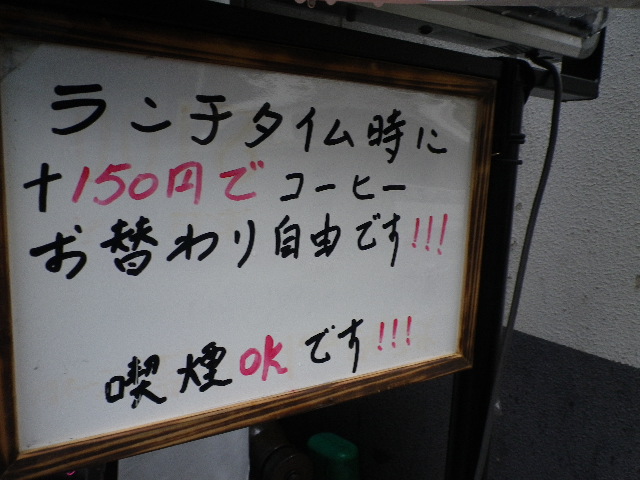 ランチタイム時に
+150円でコーヒー
お替わり自由です!!!
喫煙OKです!!!